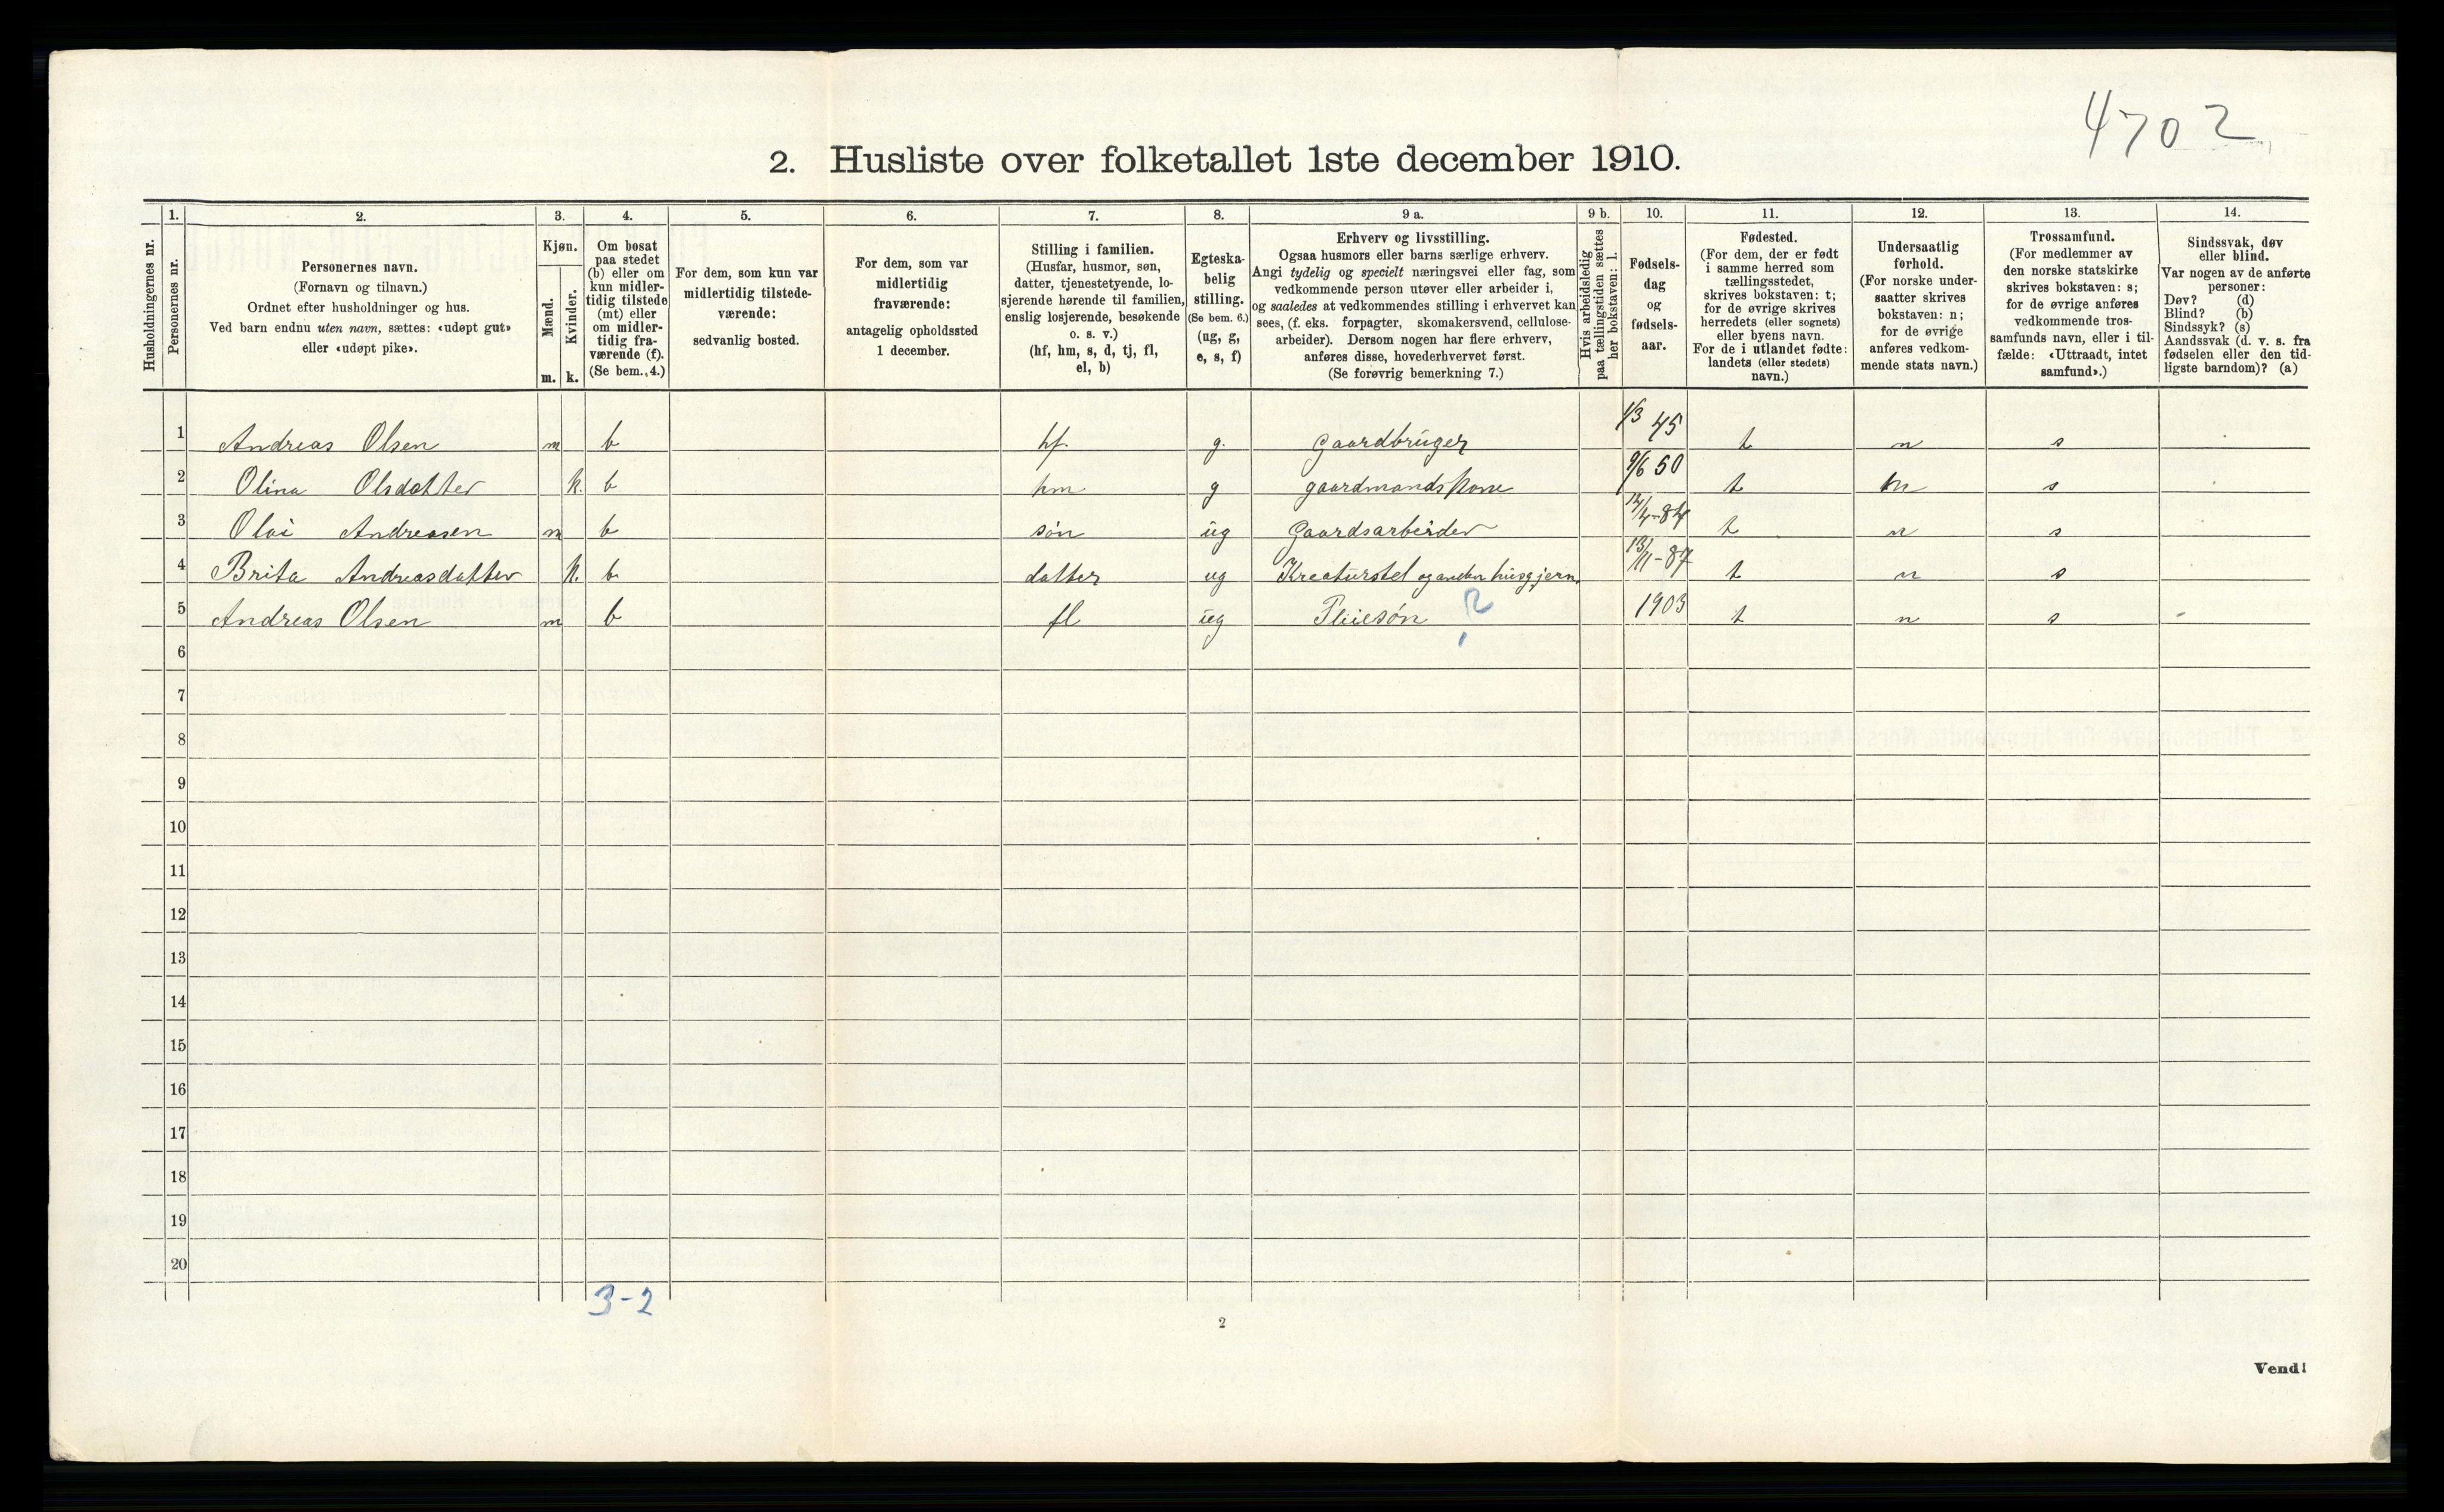 4702
2. Husliste over folketallet 1ste december 1910.
Husholdningernes nr.
1.
Personernes nr.
2.
Personernes navn.
(Fornavn og tilnavn.)
Ordnet efter husholdninger og hus.
Ved barn endnu uten navn, sættes: «udøpt gut»
eller «udøpt pike».
3.
Kjøn.
Mænd.
Kvinder.
m. k.
4.
Om bosat
paa stedet
(b) eller om
kun midler-
tidig tilstede
(mt) eller
om midler-
tidig fra-
værende (f).
(Se bem. 4.)
5.
For dem, som kun var
midlertidig tilstede-
værende:
sedvanlig bosted.
6.
For dem, som var
midlertidig
fraværende:
antagelig opholdssted
1 december.
7.
Stilling i familien.
(Husfar, husmor, søn,
datter, tjenestetyende, lo-
sjerende hørende til familien,
enslig losjerende, besøkende
o. s. v.)
(hf, hm, s, d, tj, fl,
el, b)
8.
Egteska-
belig
stilling.
(Se bem. 6.)
(ug, g,
e, s, f)
9 a.
Erhverv og livsstilling.
Ogsaa husmors eller barns særlige erhverv.
Angi tydelig og specielt næringsvei eller fag, som
vedkommende person utøver eller arbeider i,
og saaledes at vedkommendes stilling i erhvervet kan
sees, (f. eks. forpagter, skomakersvend, cellulose-
arbeider). Dersom nogen har flere erhverv,
anføres disse, hovederhvervet først.
(Se forøvrig bemerkning 7.)
9 b.
Hvis arbeidsledig
paa tællingstiden sættes
her bokstaven: l.
10.
Fødsels-
dag
og
fødsels-
aar.
11.
Fødested.
(For dem, der er født
i samme herred som
tællingsstedet,
skrives bokstaven: t;
for de øvrige skrives
herredets (eller sognets)
eller byens navn.
For de i utlandet fødte:
landets (eller stedets)
navn.)
12.
Undersaatlig
forhold.
(For norske under-
saatter skrives
bokstaven: n;
for de øvrige
anføres vedkom-
mende stats navn.)
13.
Trossamfund.
(For medlemmer av
den norske statskirke
skrives bokstaven: s;
for de øvrige anføres
vedkommende tros-
samfunds navn, eller i til-
fælde: «Uttraadt, intet
samfund».)
14.
Sindssvak, døv
eller blind.
Var nogen av de anførte
personer:
Døv? (d)
Blind? (b)
Sindssyk? (s)
Aandssvak (d. v. s. fra
fødselen eller den tid-
ligste barndom)? (a)
1 Andreas Olsen m b hf. g. Gaardbruger 1/3 45 t n s
2 Olina Olsdatter k. b hm g gaardmandskone 9/6 50 t n s
3 Olai Andreasen m b søn ug Gaardsarbeider 12/4-84 t n s
4 Brita Andreasdatter k. b datter ug Kreaturstel og anden husgjern. 13/11-87 t n s
5 Andreas Olsen m b fl ug Pleiesøn 1903 t n s -
6
7
8
9
10
11
12
13
14
15
16
17
18
19
20
3-2
2
Vend!